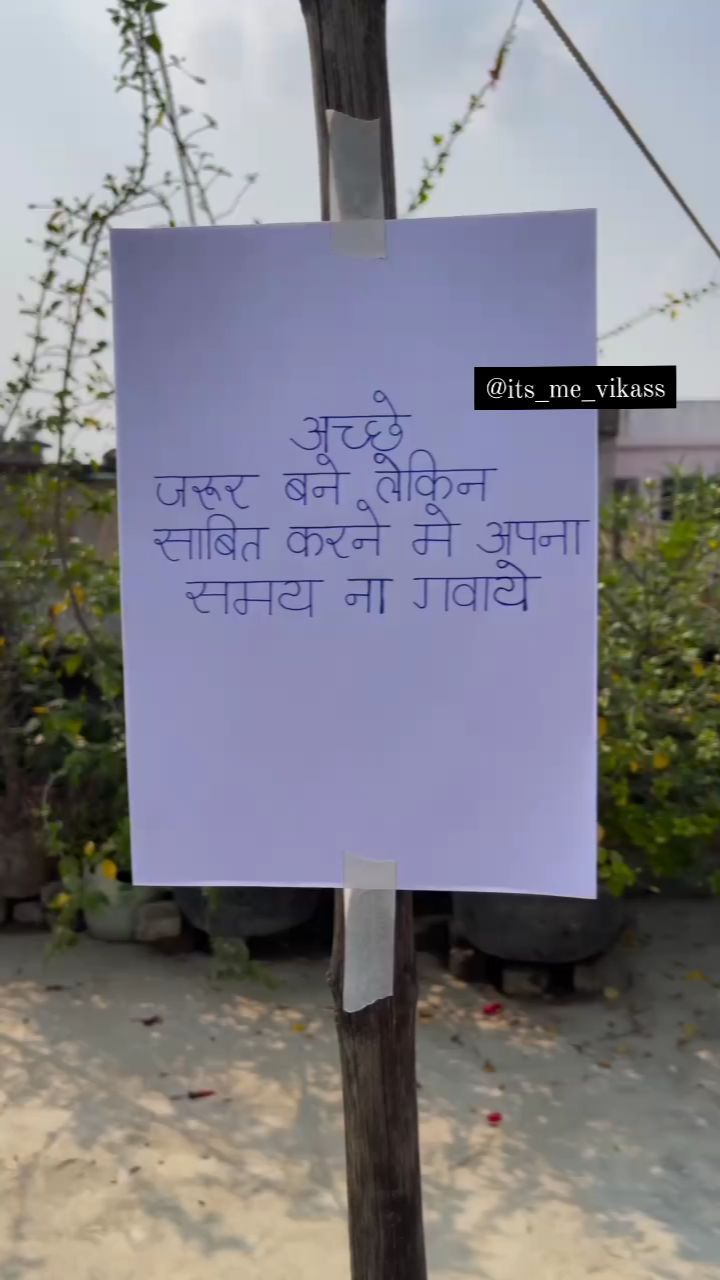 @its_me_vikass
अच्छे
जरूर बने लेकिन
साबित करने मे अपना
समय ना गवाये